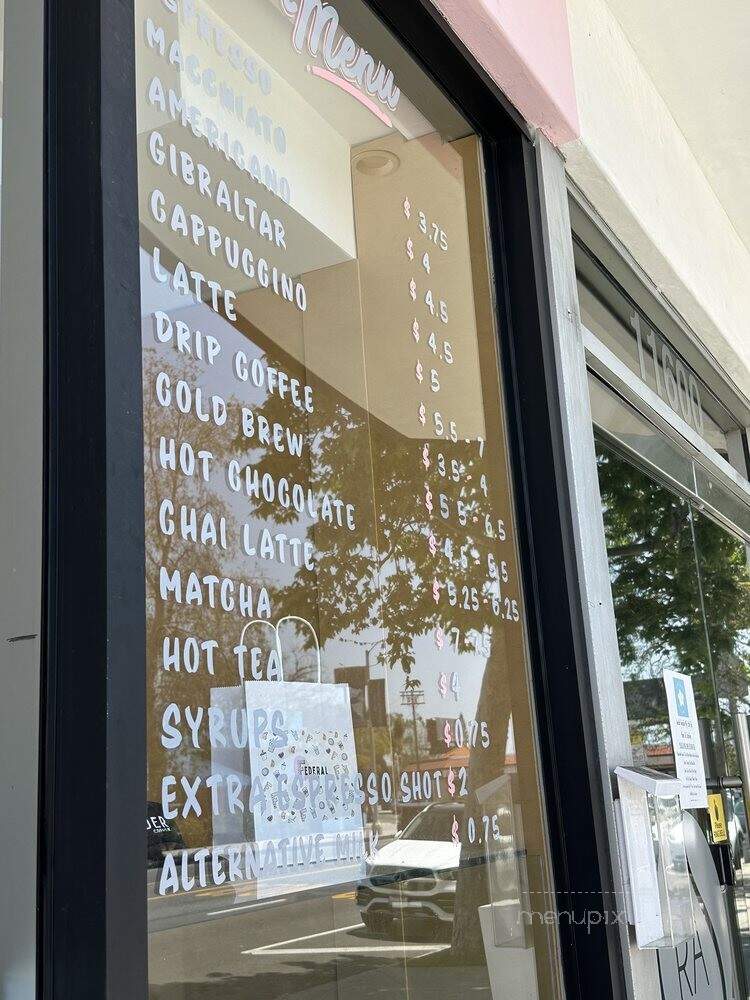 Menu
ESPRESSO $3.75
MACCHIATO $4
AMERICANO $4.5
GIBRALTAR $4.5
CAPPUCCINO $5
LATTE $5.5-7
DRIP COFFEE $3.5-4
COLD BREW $5.5-6.5
HOT CHOCOLATE $4.5-5.5
CHAI LATTE $5.25-6.25
MATCHA $7-7.5
HOT TEA $4
SYRUPS $0.75
EXTRA ESPRESSO SHOT $2
ALTERNATIVE MILK $0.75
FEDERAL
11600
RA
menupix